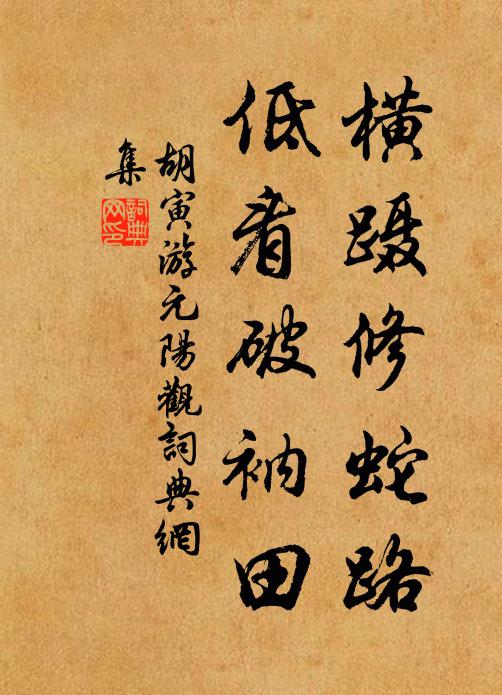 橫蹑修蛇路
低看破衲田
胡寅游元陽觀詞典網
集
詞典
网印